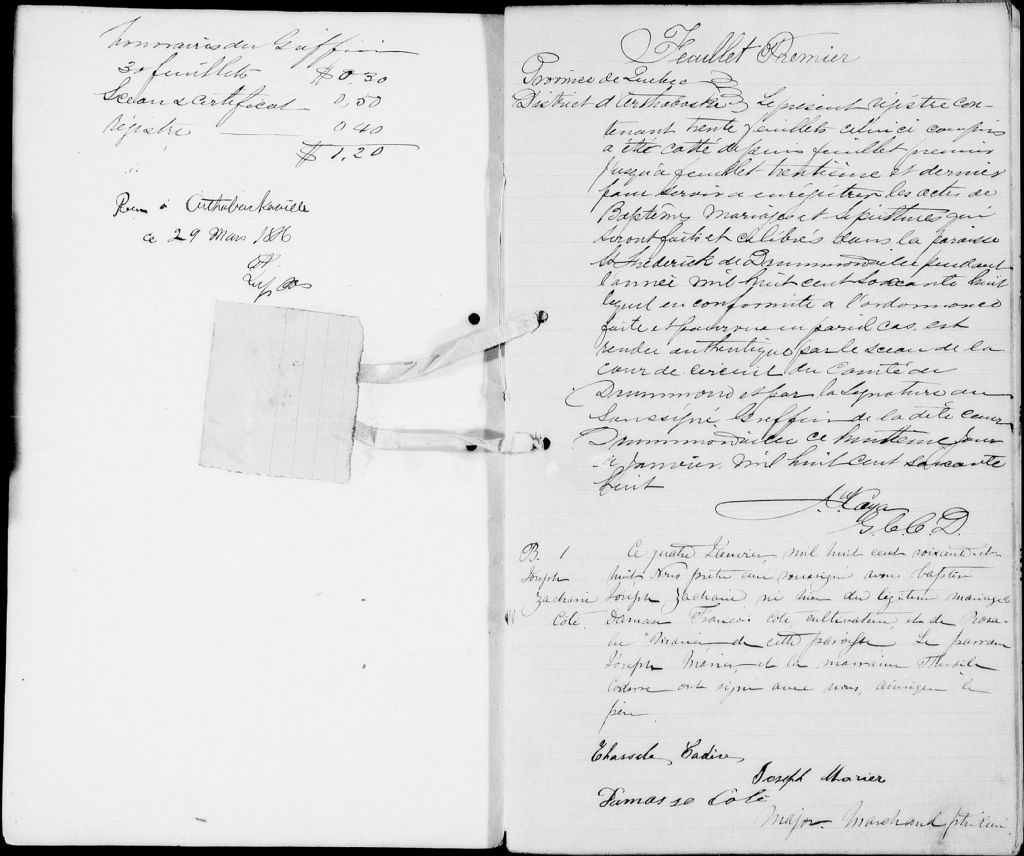 Honoraires du Greffier
30 feuillets $0.30
Sceau & certificat 0,50
régistre 0 40
$1,20
à Arthabaskaville
ce 29 Mars 186
Feuillet Premier
Province de Quebec
District d'Arthabaska Le present régistre con-
tenant trente feuillets celui ci compris
a été cotté depuis feuillet premier
jusqu'a feuillet trentième et dernier
pour servir a enrégistrer les actes de
Baptêmes Mariages et Sepultures qui
seront faits et célébrés dans la paroisse
St Frederick de Drummondville pendant
l'année mil huit cent soixante huit
lequel en conformité a l'ordonnance
faite et pourvue en pareil cas, est
rendu authentique par le sceau de la
cour de circuit du Comté de
Drummond et par la Signature du
Soussigné Greffier de la dite cour
Drummondville ce huitième jour
de janvier mil huit cent soixante
huit
G.C.C.D.
B 1 Ce quatre Janvier mil huit cent soixante-et-
Joseph huit Nous prêtre curé soussigné avons baptisé
Zacharie Joseph Zacharie, né hier du légitime mariage de
Coté. Damase François Coté, cultivateur, et de Rosa-
lie Marier de cette paroisse. Le parrain
Joseph Marier et la marraine
ont signé avec nous, ainsi que le
père.
Joseph Marier
Damasse Coté
Major. Marchand ptre curé